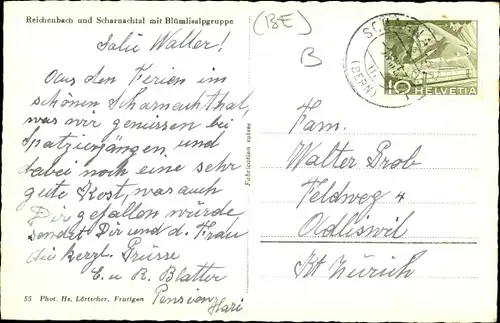 Reichenbach und Scharnachtal mit Blümlisalpgruppe
(BE)
B
Salü Walter!
Aus den Ferien im
schönen Scharnachthal,
was wir geniessen bei
Spatziergängen, und
dabei noch eine sehr
gute Kost, was auch
Dir gefallen würde,
sendet Dir und d. Frau
die herzl. Grüsse
E. u R. Blatter
Pension
Hari
55 Phot. Hs. Lörtscher, Frutigen
Fabrication suisse
(BERN)
10 HELVETIA
Fam.
Walter Prob
Feldweg 4
Adliswil
Kt Zürich